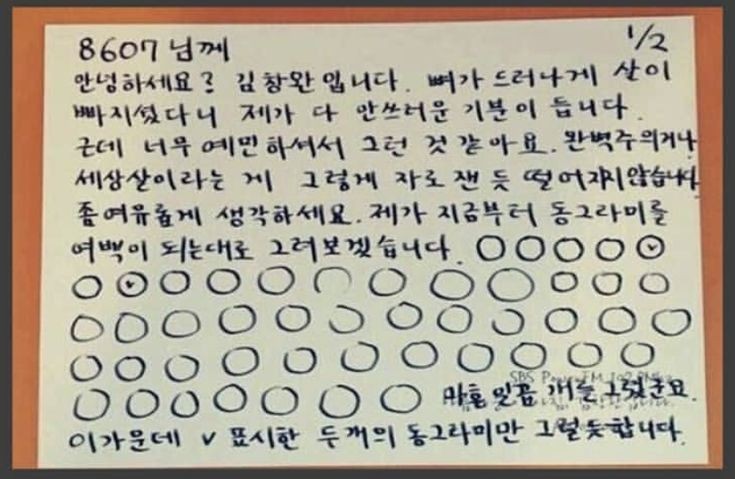 8607님께 1/2
안녕하세요? 김창완입니다. 뼈가 드러나게 살이
빠지셨다니 제가 다 안쓰러운 기분이 듭니다.
근데 너무 예민하셔서 그런 것 같아요. 완벽주의거나
세상살이라는 게 그렇게 자로 잰 듯 떨어지지않습니다.
좀 여유롭게 생각하세요. 제가 지금부터 동그라미를
여백이 되는대로 그려보겠습니다.
SBS Power FM
마흔일곱 개를 그렸군요.
이가운데 v 표시한 두개의 동그라미만 그럴듯합니다.